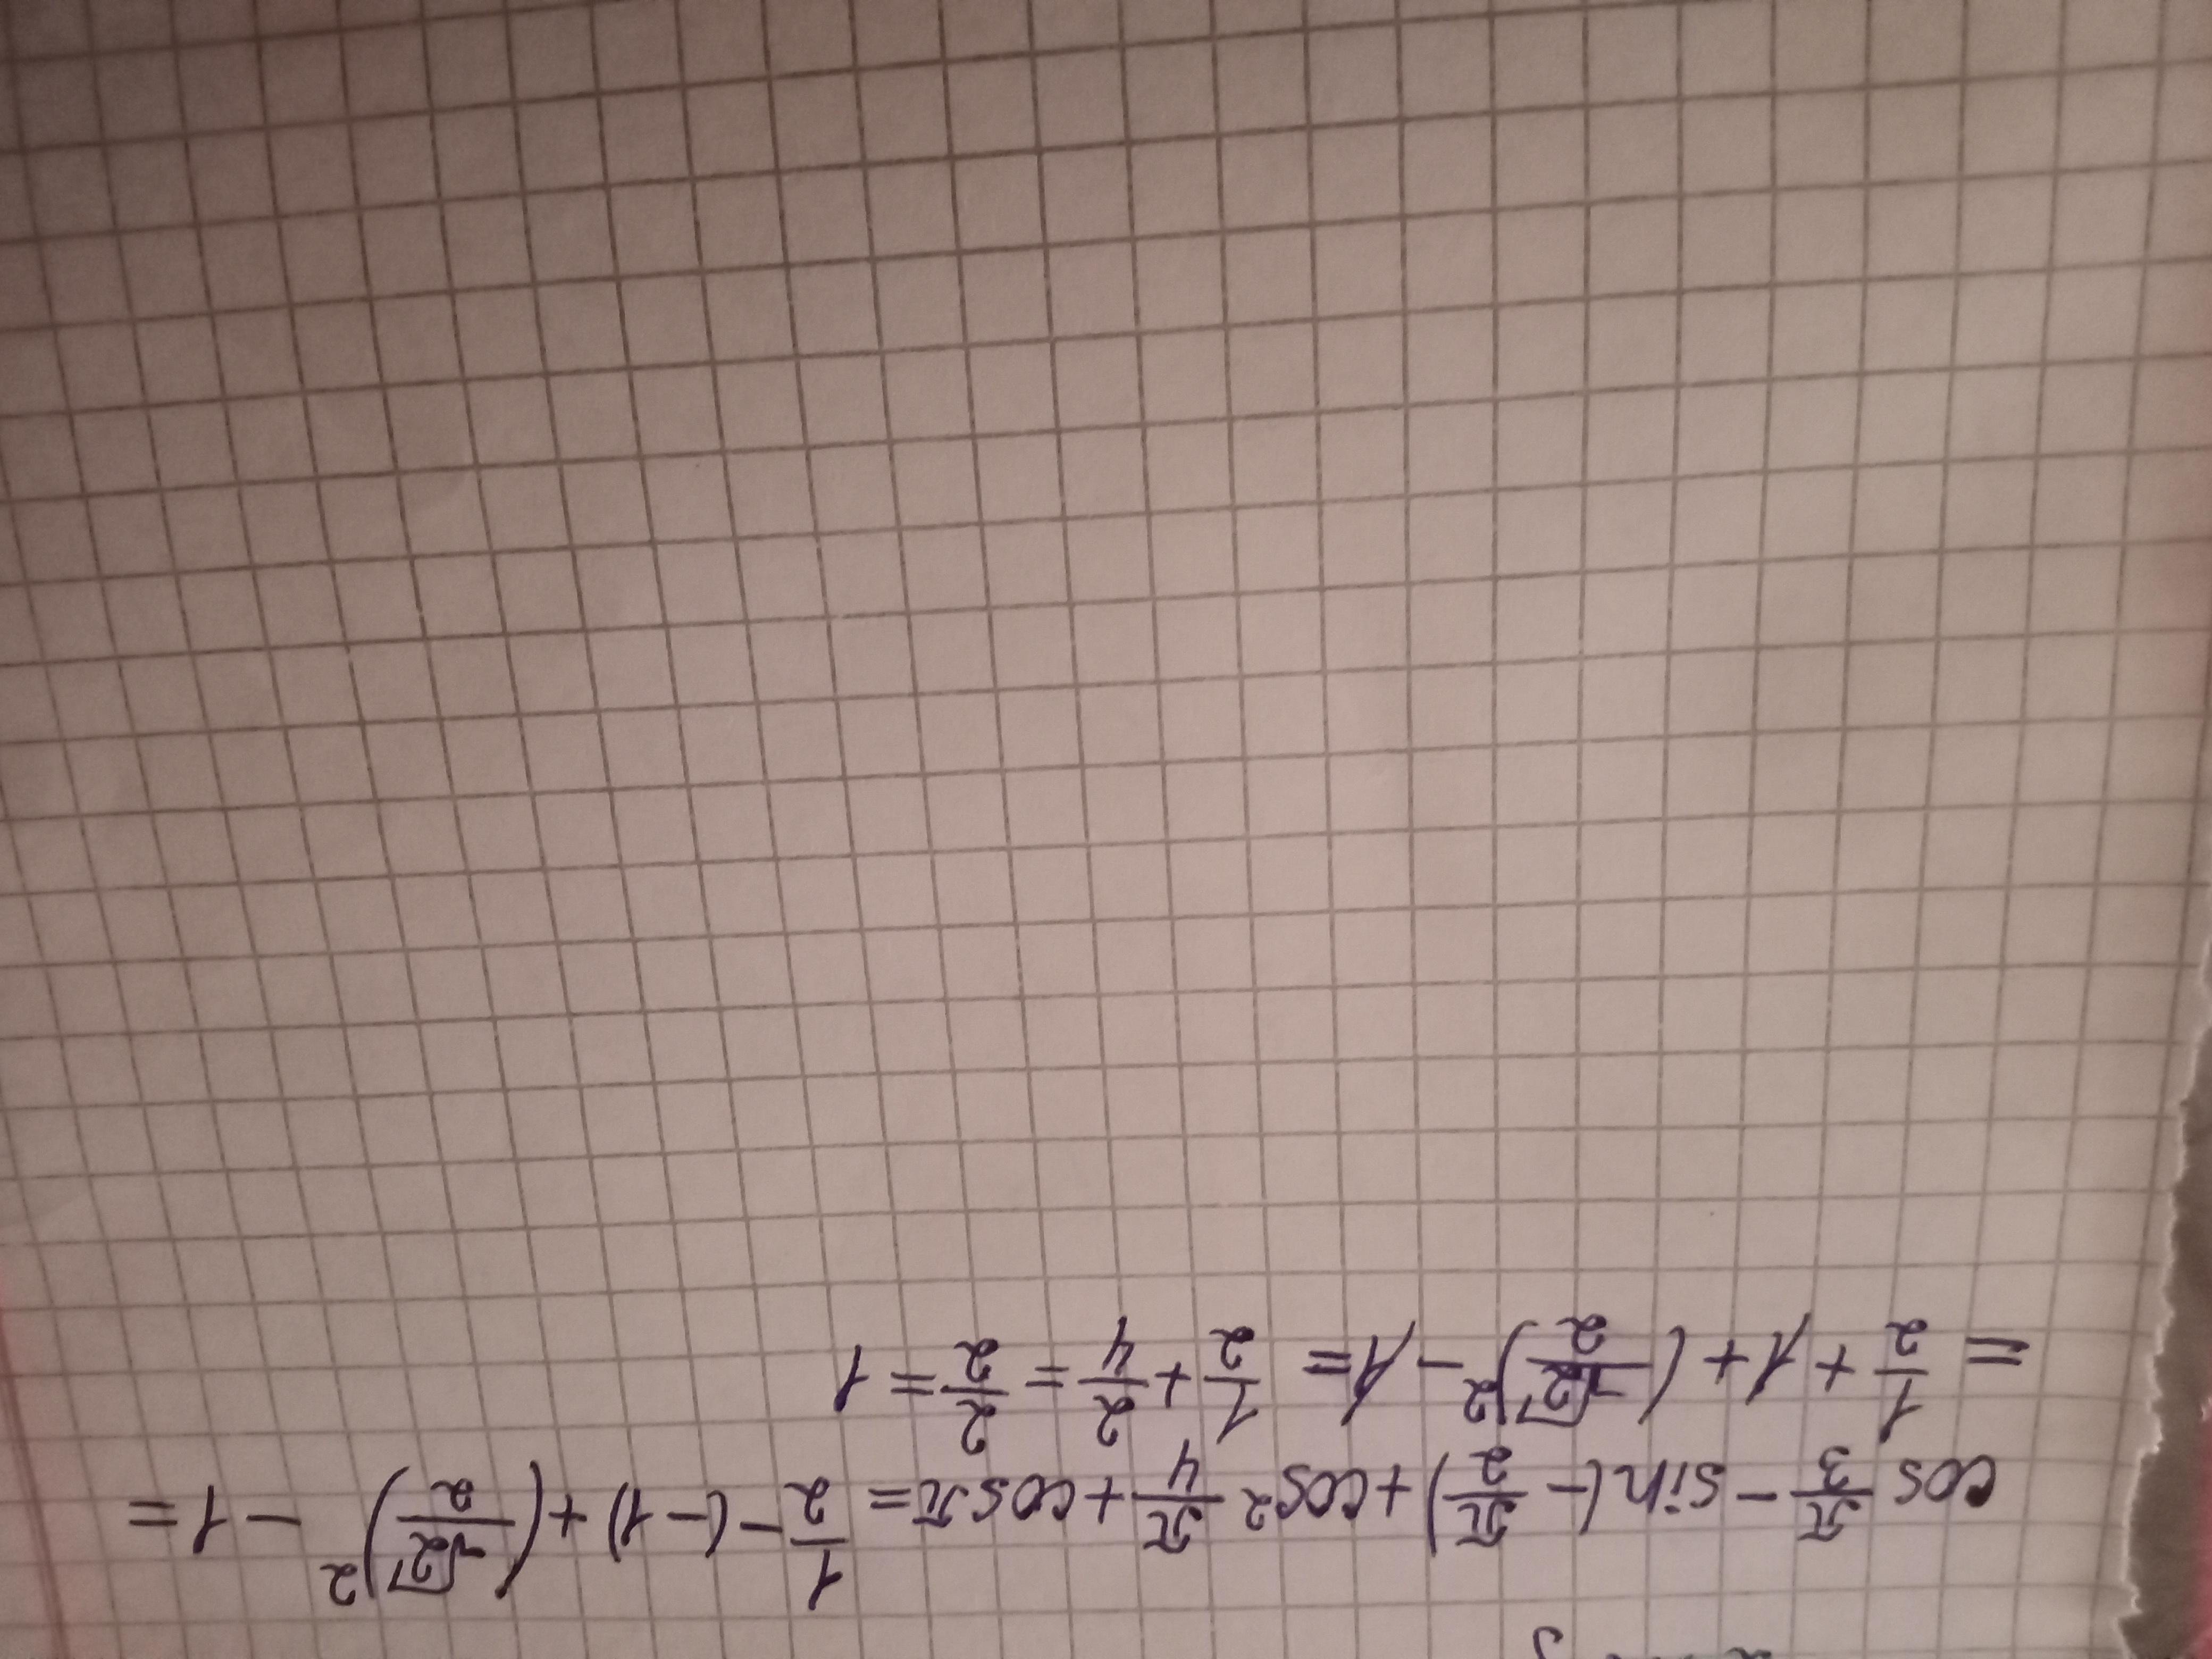 cos π/3 - sin(-π/2) + cos² π/4 + cos π = 1/2 - (-1) + (√2/2)² - 1 =
= 1/2 + 1 + (√2/2)² - 1 = 1/2 + 2/4 = 2/2 = 1